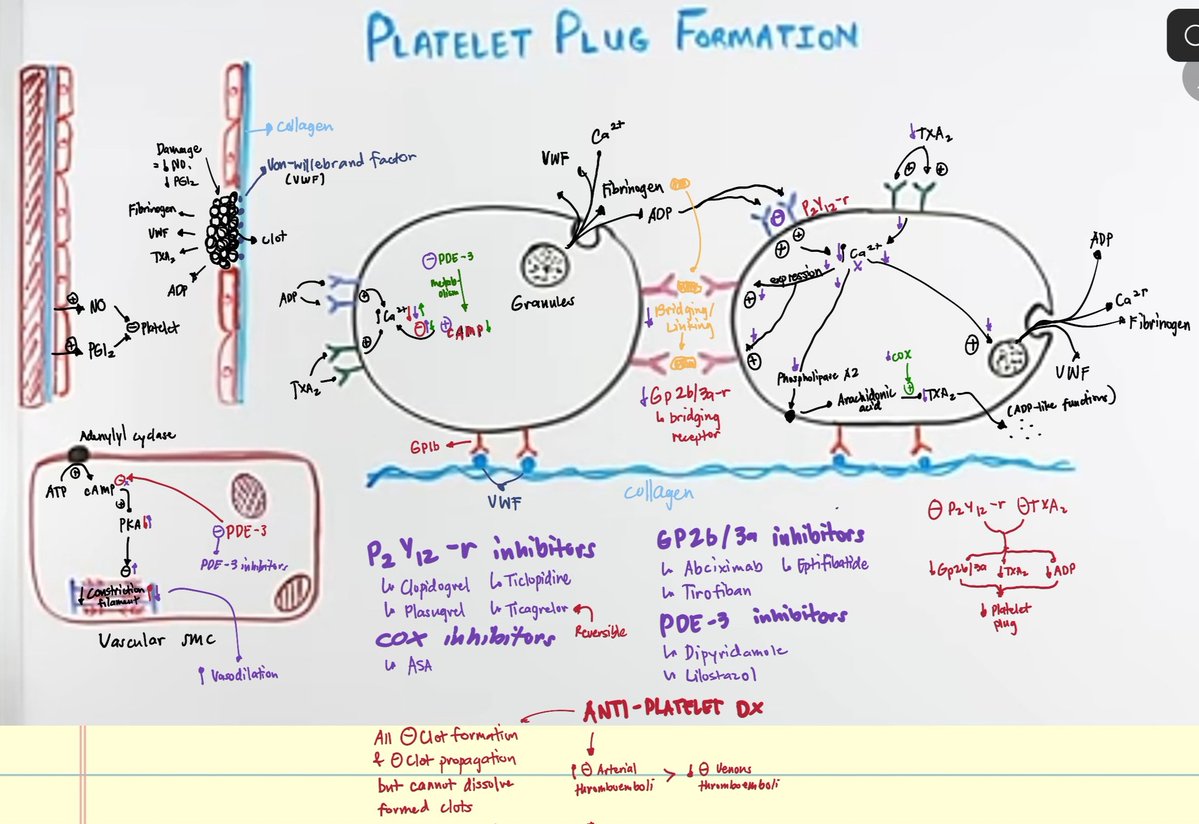 PLATELET PLUG FORMATION
Collagen
Von-willebrand factor
(VWF)
Damage
= ↓ NO,
↓ PGI2
Fibrinogen
VWF
TXA2
ADP
clot
⊕ NO
⊕ PGI2
⊖ Platelet
Ca2+
VWF
Fibrinogen
ADP
Granules
⊖ PDE-3
metab
olism
ADP
⊕
↑Ca2+ ↓↓↑
⊖ ↑↓ ⊕ cAMP↓
⊕
TXA2
GP1b
VWF
collagen
Bridging/
Linking
↓Gp2b/3a-r
↳ bridging
receptor
↓TXA2
⊕ ⊕
P2Y12-r
⊖
⊕ ⊕
↑Ca2+ ↓
x
expression
⊕
⊕
⊕
Phospholipase A2
↓COX
⊕
Arachidonic
acid
↓TXA2
(ADP-like functions)
ADP
Ca2r
Fibrinogen
VWF
Adenylyl cyclase
⊕
ATP
cAMP
⊖
⊕
PKA↓↑
⊖ PDE-3
PDE-3 inhibitors
⊖↑
↓ Constriction ↑↓
filament
Vascular SMC
↑ Vasodilation
P2Y12-r inhibitors
↳ Clopidogrel ↳ Ticlopidine
↳ Plasugrel ↳ Ticagrelor
Reversible
COX inhibitors
↳ ASA
GP2b/3a inhibitors
↳ Abciximab ↳ Eptifibatide
↳ Tirofiban
PDE-3 inhibitors
↳ Dipyridamole
↳ Lilostazol
⊖ P2Y12-r ⊖TXA2
↓Gp2b/3a ↓TXA2 ↓ADP
↓ Platelet
plug
ANTI-PLATELET DX
All ⊖ Clot formation
& ⊖ Clot propagation
but cannot dissolve
formed clots
↑ ⊖ Arterial
thromboemboli
>
↓ ⊖ Venous
thromboemboli